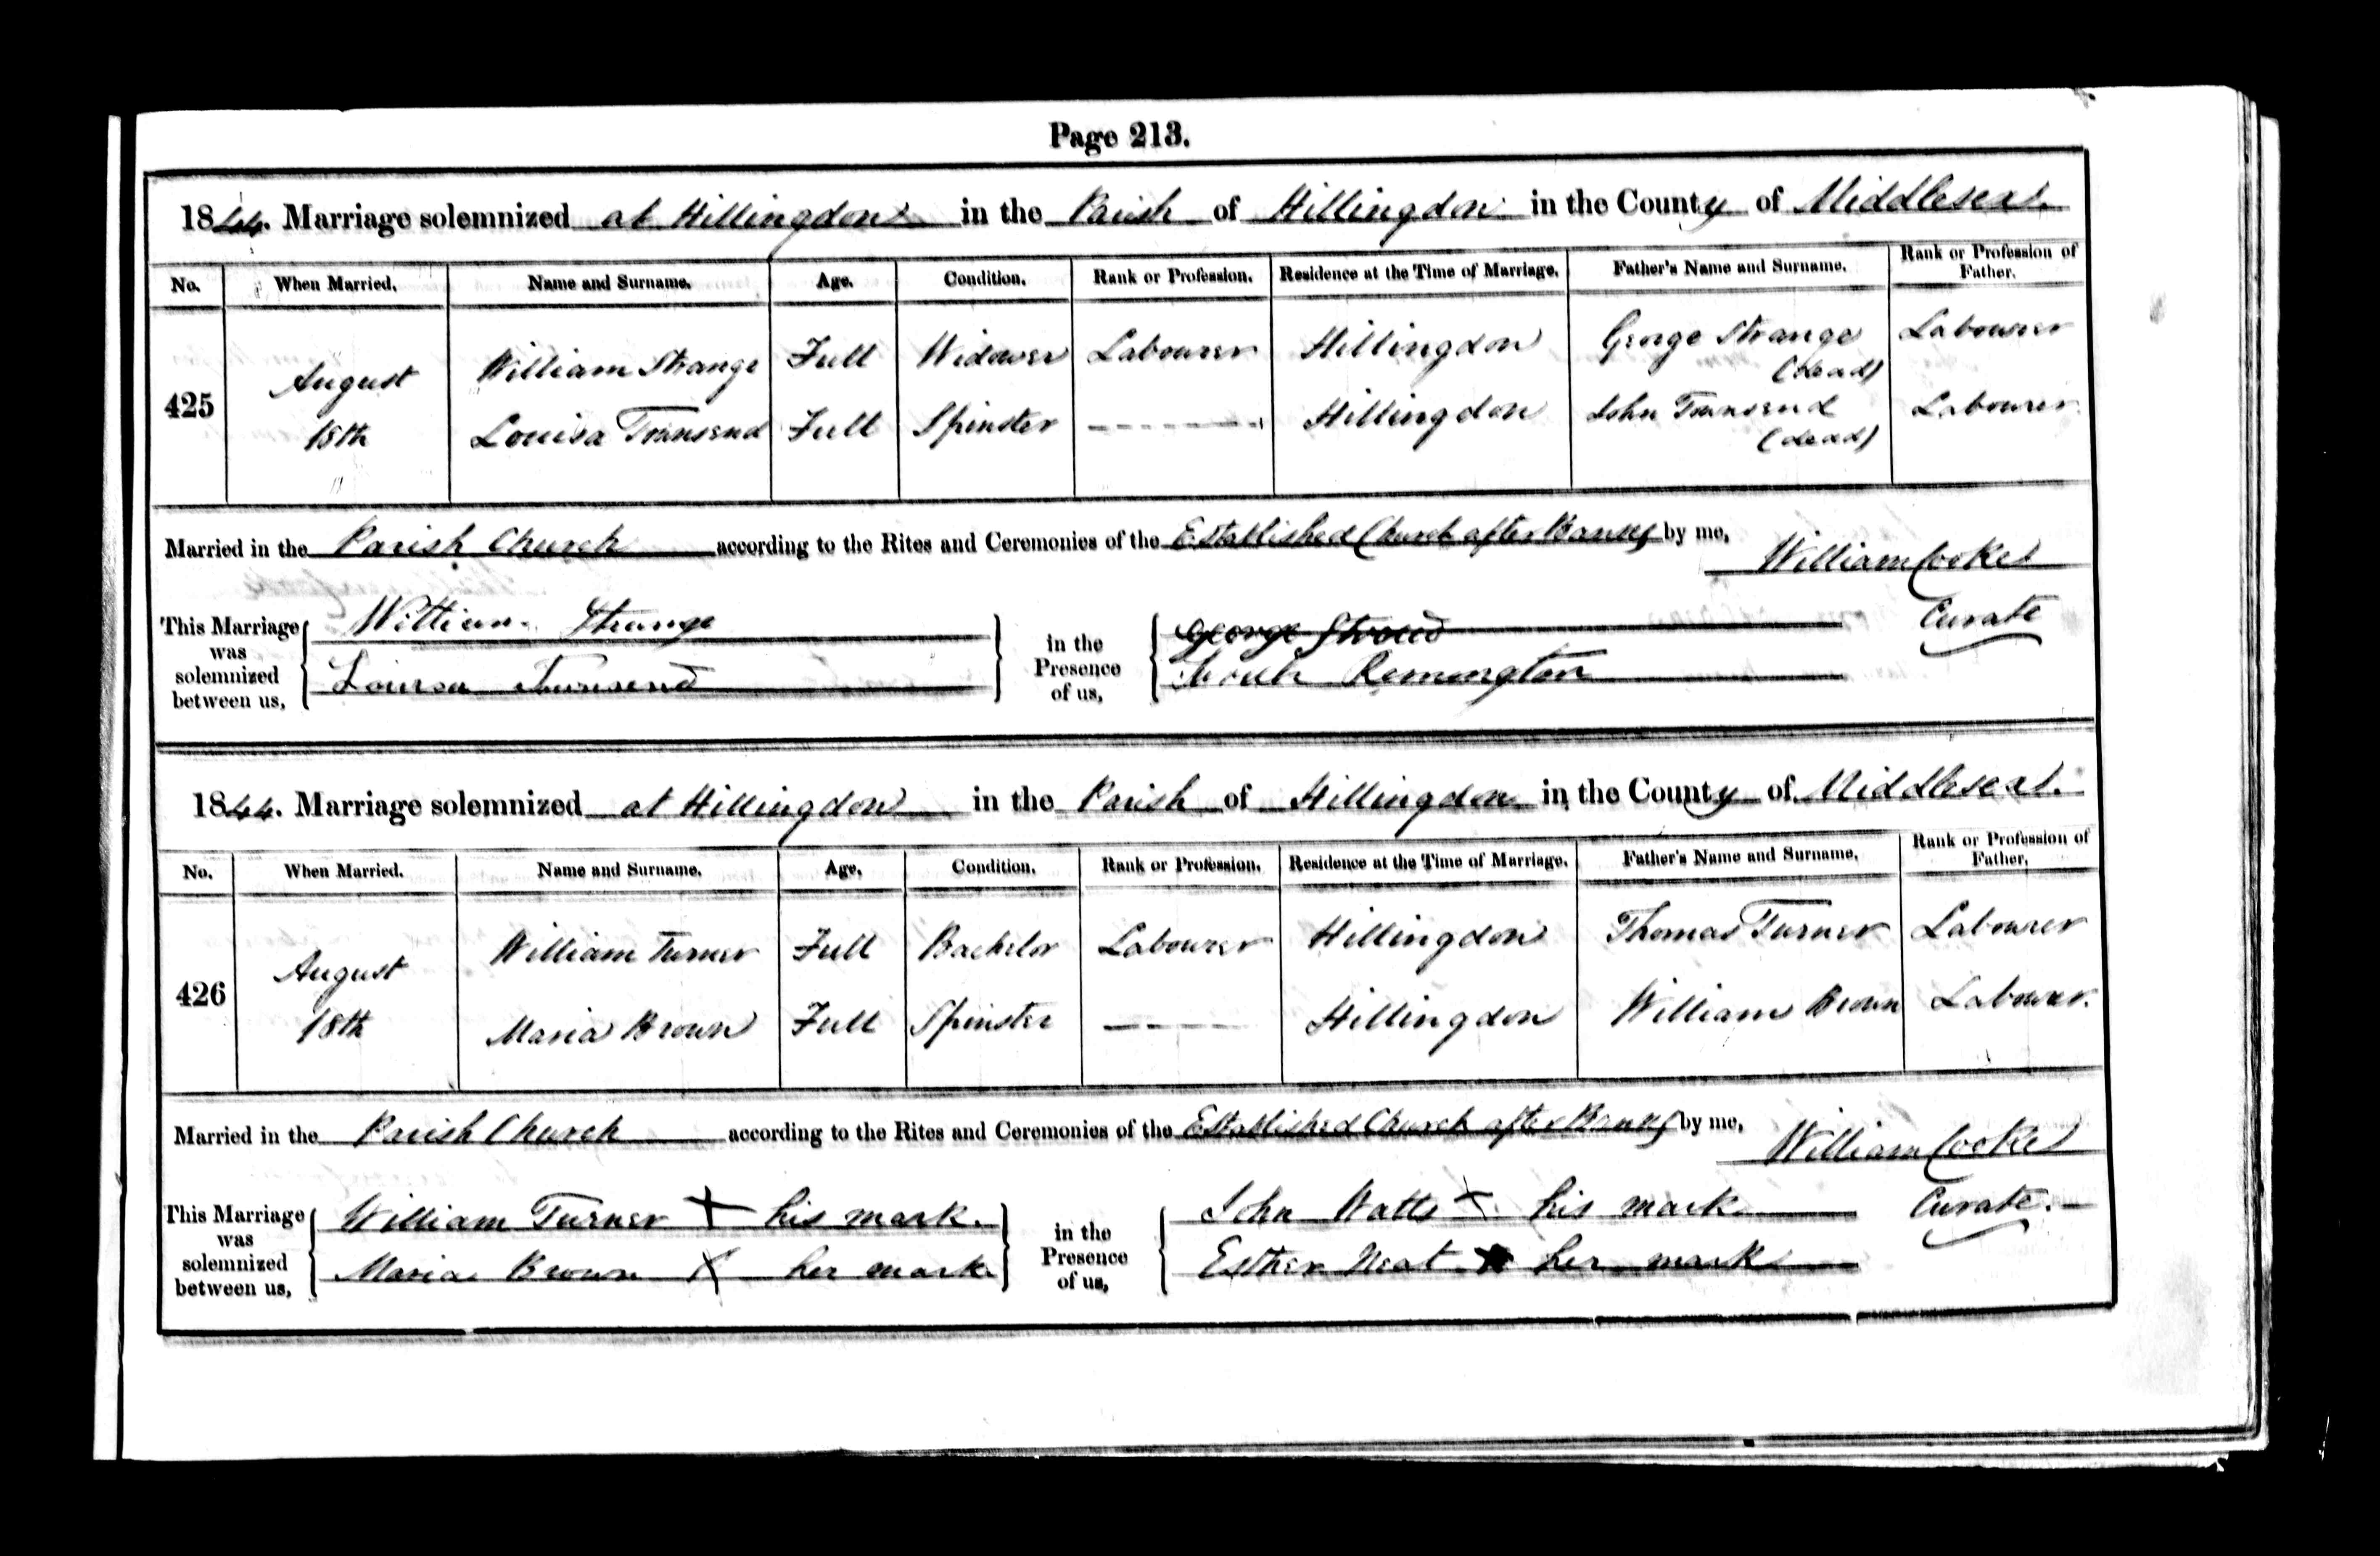 Page 213.
1844. Marriage solemnized at Hillingdon in the Parish of Hillingdon in the County of Middlesex.
No. When Married. Name and Surname. Age. Condition. Rank or Profession. Residence at the Time of Marriage. Father's Name and Surname. Rank or Profession of Father.
425 August 18th
William Strange Full Widower Labourer Hillingdon George Strange (dead) Labourer
Louisa Townsend Full Spinster Hillingdon John Townsend (dead) Labourer
Married in the Parish Church according to the Rites and Ceremonies of the Established Church after Banns by me, William Cooke Curate
This Marriage was solemnized between us,
William Strange
Louisa Townsend
in the Presence of us,
George
Remington
1844. Marriage solemnized at Hillingdon in the Parish of Hillingdon in the County of Middlesex.
No. When Married. Name and Surname. Age. Condition. Rank or Profession. Residence at the Time of Marriage. Father's Name and Surname. Rank or Profession of Father.
426 August 18th
William Turner Full Bachelor Labourer Hillingdon Thomas Turner Labourer
Maria Brown Full Spinster Hillingdon William Brown Labourer.
Married in the Parish Church according to the Rites and Ceremonies of the Established Church after Banns by me, William Cooke Curate.
This Marriage was solemnized between us,
William Turner X his mark.
Maria Brown X her mark.
in the Presence of us,
John Watts X his mark
Esther Neat X her mark